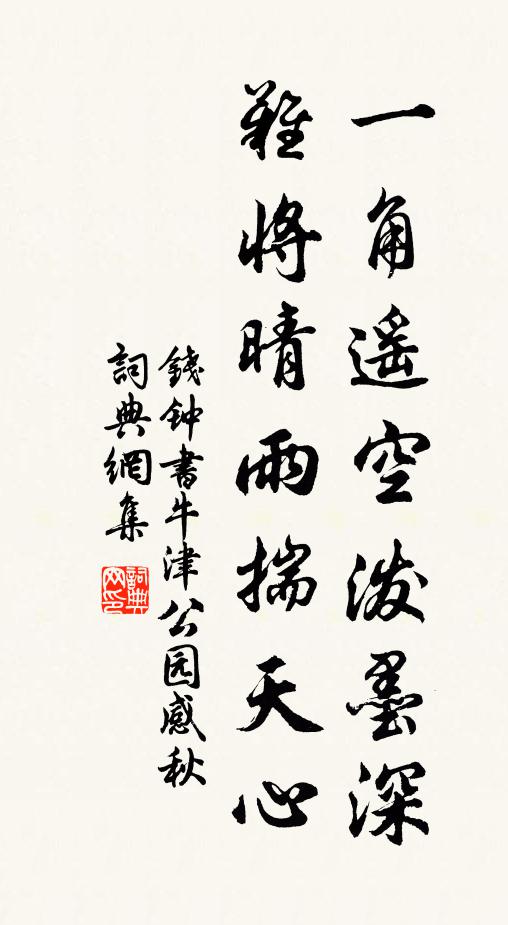 一角遥空潑墨深
難將晴雨揣天心
錢钟書牛津公园感秋
詞典網集
詞典
网印